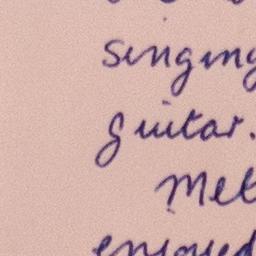 singing
guitar.
Met
enjoyed